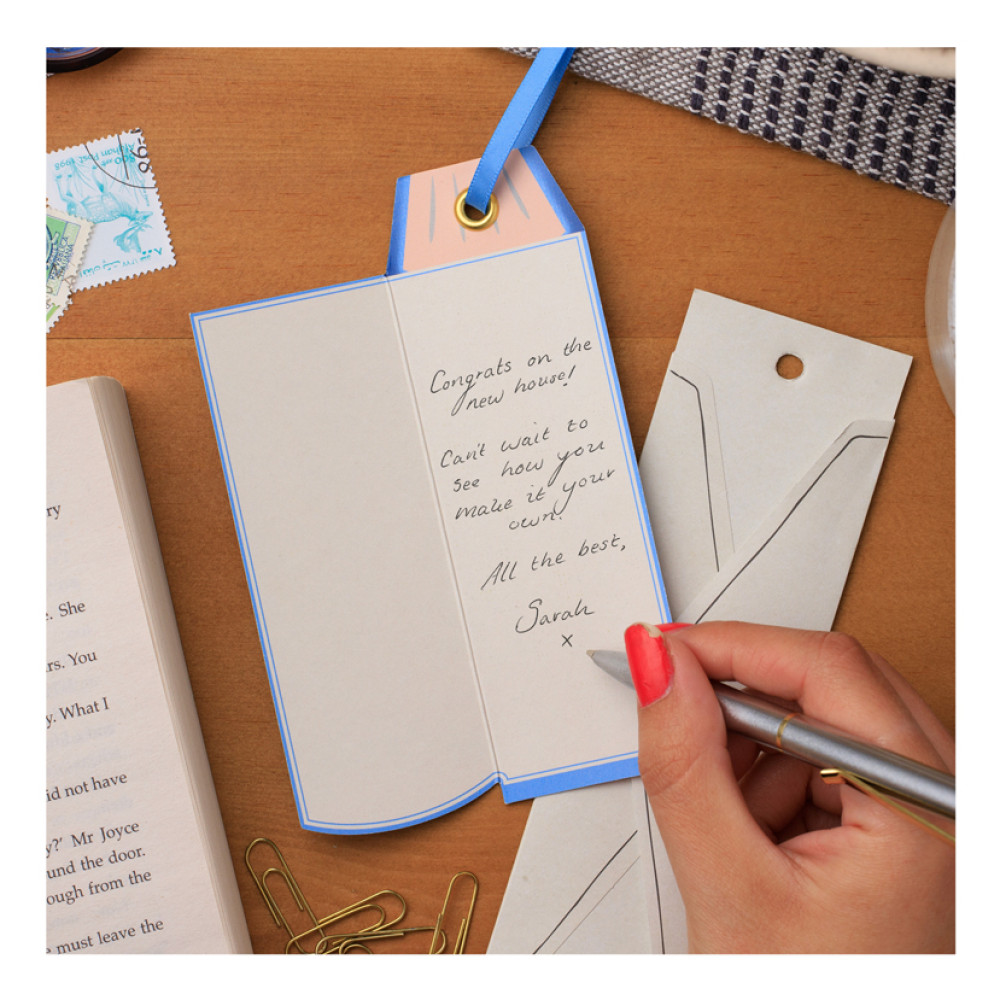 Congrats on the
new house!
Can't wait to
see how you
make it your
own.
All the best,
Sarah
x
ry
. She
rs. You
y. What I
id not have
y?' Mr Joyce
und the door.
ough from the
must leave the
Afghan Post 1998
98